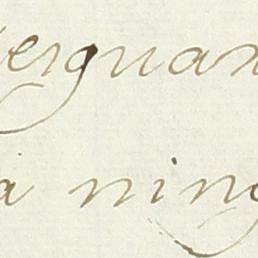 erguan
a ning